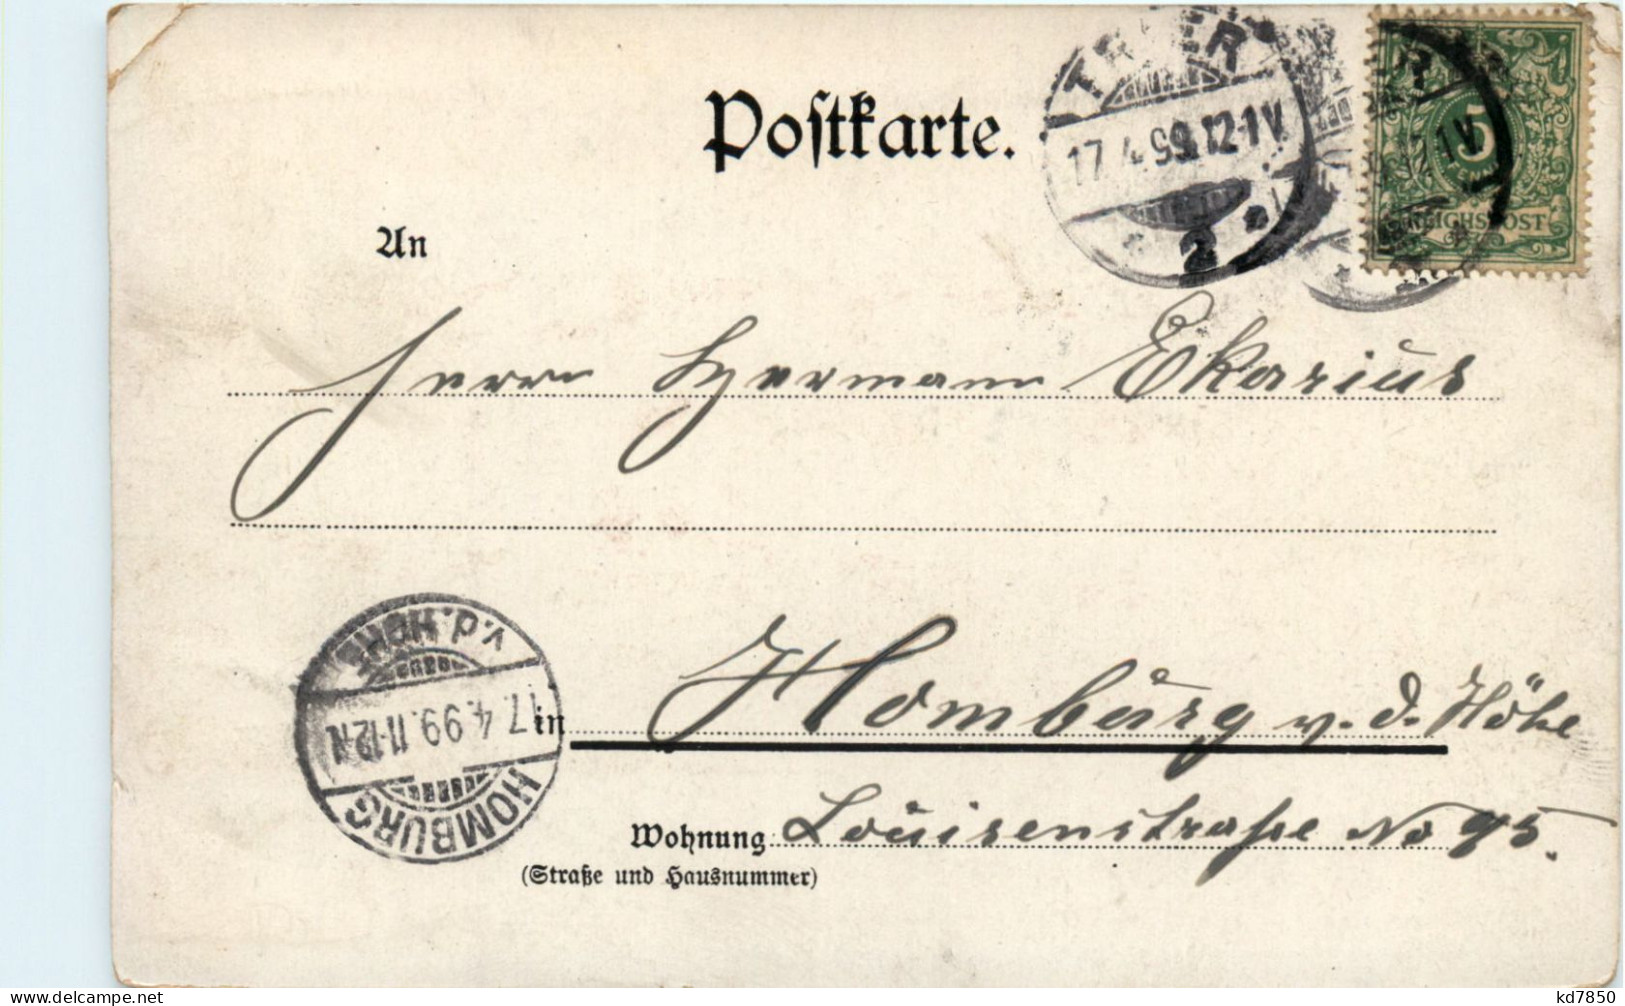 Postkarte.
TRIER
17.4.99.12-1V
2
5
REICHSPOST
An
Herrn Hermann Ekarius
V.D. HÖHE
17.4.99.11-12N
HOMBURG
in Homburg v. d. Höhe
Wohnung Louisenstraße No 95.
(Straße und Hausnummer)
kd7850